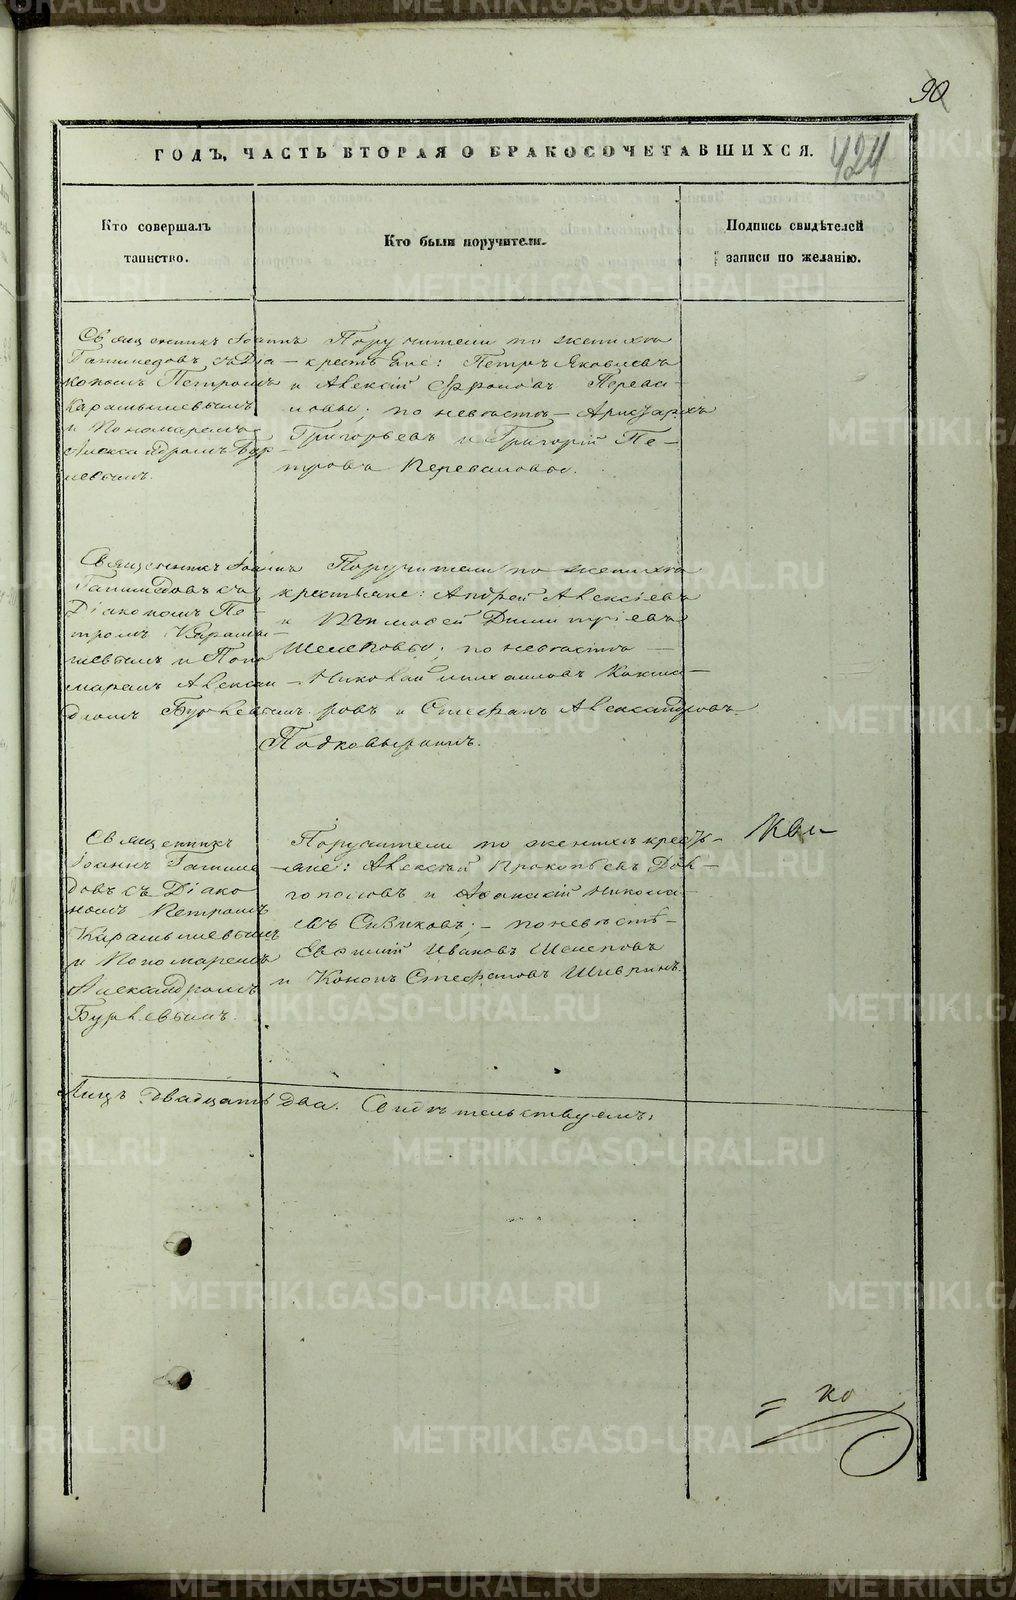 90
424
ГОДЪ, ЧАСТЬ ВТОРАЯ О БРАКОСОЧЕТАВШИХСЯ.
Кто совершалъ
таинство.
Кто были поручители.
Подпись свидѣтелей
записи по желанію.
Священникъ Іоаннъ
съ Діа
кономъ Петромъ
Карамышевымъ
и Пономаремъ
Александромъ Бур
невымъ.
Поручители по женихѣ
крестьяне: Петръ Яковлевъ
и Алексій Фроловъ Перева
ловы; по невѣстѣ – Аристархъ
Григорьевъ и Григорій Пе-
тровъ Переваловы.
Священникъ Іоаннъ
съ
Діакономъ Пе-
тромъ Карамы-
шевымъ и Поно
маремъ Алексан
дромъ Бурневымъ.
Поручители по женихѣ
крестьяне: Андрей Алексіевъ
и Тимофей Димитріевъ
Шелеповы; по невѣстѣ –
Николай Михаиловъ
ровъ и Стефанъ Александровъ
Священникъ
Іоаннъ
довъ съ Діако
номъ Петромъ
Карамышевымъ
и Пономаремъ
Александромъ
Бурневымъ.
Поручители по женихѣ кресть-
яне: Алексѣй Прокопьевъ Дол-
гополовъ и Николa-
евъ; – по невѣстѣ –
Евфимій Ивановъ Шелеповъ
и Кононъ Стефановъ
Лицъ двадцать два. Свидѣтельствуемъ:
= ко
METRIKI.GASO-URAL.RU